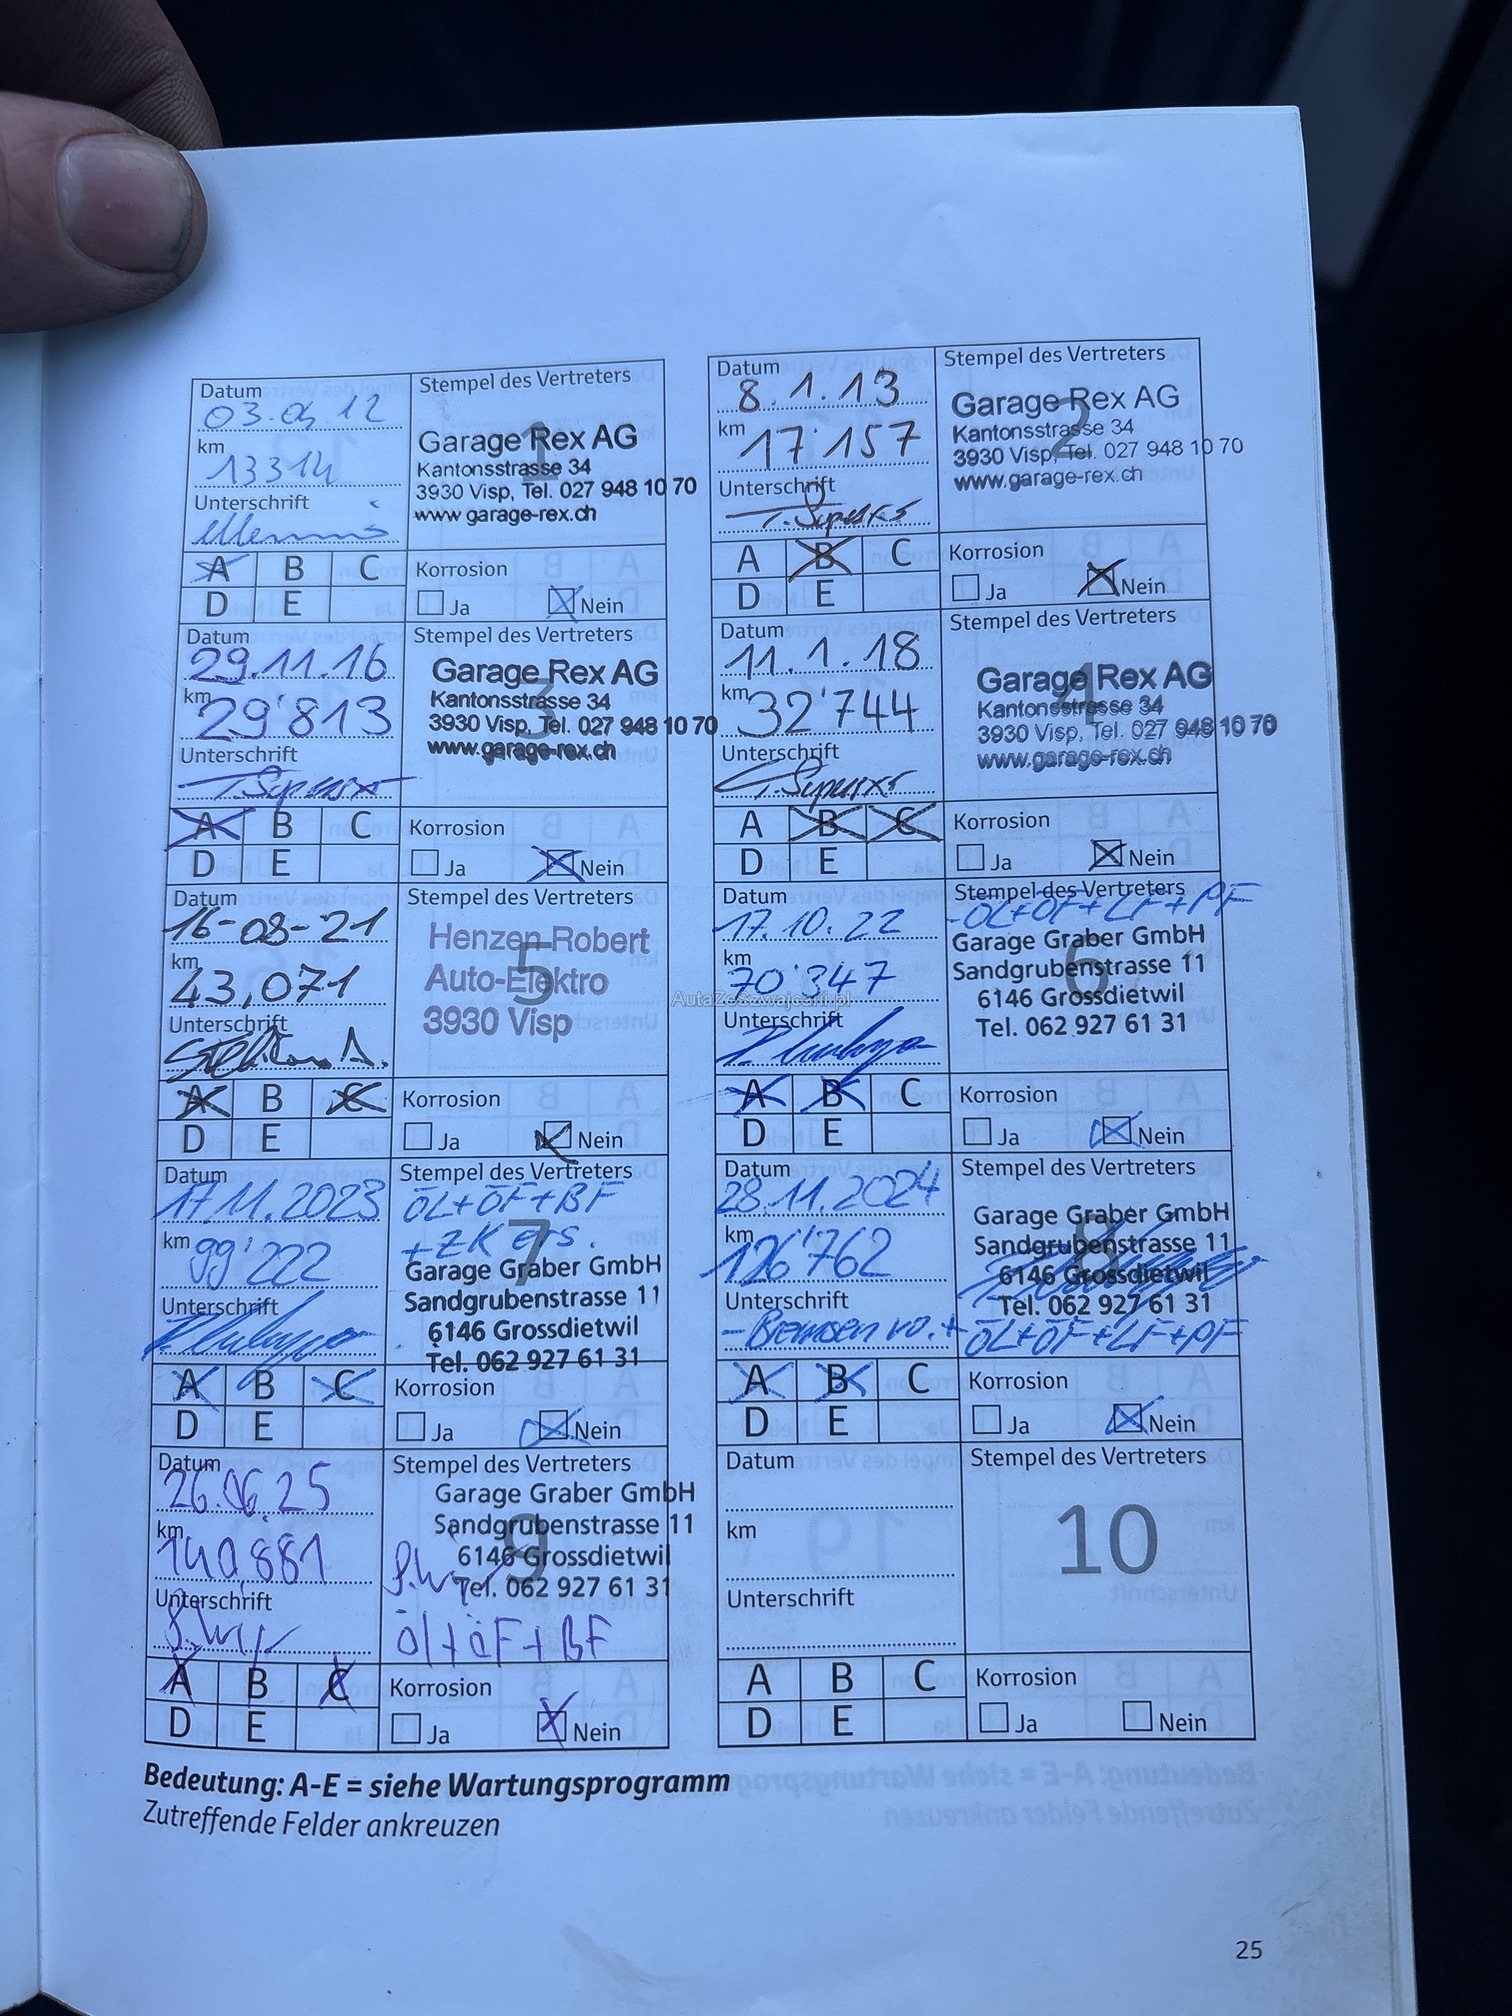 Datum
03.04.12
km
13314
Unterschrift
Stempel des Vertreters
1
Garage Rex AG
Kantonsstrasse 34
3930 Visp, Tel. 027 948 10 70
www.garage-rex.ch
A B C
D E
Korrosion
Ja Nein
Datum
8.1.13
km
17'157
Unterschrift
Stempel des Vertreters
2
Garage Rex AG
Kantonsstrasse 34
3930 Visp, Tel. 027 948 10 70
www.garage-rex.ch
A B C
D E
Korrosion
Ja Nein
Datum
29.11.16
km
29'813
Unterschrift
Stempel des Vertreters
3
Garage Rex AG
Kantonsstrasse 34
3930 Visp, Tel. 027 948 10 70
www.garage-rex.ch
A B C
D E
Korrosion
Ja Nein
Datum
11.1.18
km
32'744
Unterschrift
Stempel des Vertreters
4
Garage Rex AG
Kantonsstrasse 34
3930 Visp, Tel. 027 948 10 70
www.garage-rex.ch
A B C
D E
Korrosion
Ja Nein
Datum
16-08-21
km
43,071
Unterschrift
Stempel des Vertreters
5
Henzen Robert
Auto-Elektro
3930 Visp
A B C
D E
Korrosion
Ja Nein
Datum
17.10.22
km
70'347
Unterschrift
Stempel des Vertreters
- ÖL+ÖF+LF+PF
6
Garage Graber GmbH
Sandgrubenstrasse 11
6146 Grossdietwil
Tel. 062 927 61 31
A B C
D E
Korrosion
Ja Nein
AutaZeSzwajcarii.pl
Datum
17.11.2023
km
99'222
Unterschrift
Stempel des Vertreters
ÖL+ÖF+BF
+ZK ers.
7
Garage Graber GmbH
Sandgrubenstrasse 11
6146 Grossdietwil
Tel. 062 927 61 31
A B C
D E
Korrosion
Ja Nein
Datum
28.11.2024
km
126'762
Unterschrift
Stempel des Vertreters
8
Garage Graber GmbH
Sandgrubenstrasse 11
6146 Grossdietwil
Tel. 062 927 61 31
- Bremsen vo.+ ÖL+ÖF+LF+PF
A B C
D E
Korrosion
Ja Nein
Datum
26.06.25
km
140,881
Unterschrift
Stempel des Vertreters
9
Garage Graber GmbH
Sandgrubenstrasse 11
6146 Grossdietwil
Tel. 062 927 61 31
Öl+ÖF+BF
A B C
D E
Korrosion
Ja Nein
Datum
km
Unterschrift
Stempel des Vertreters
10
A B C
D E
Korrosion
Ja Nein
Bedeutung: A-E = siehe Wartungsprogramm
Zutreffende Felder ankreuzen
25